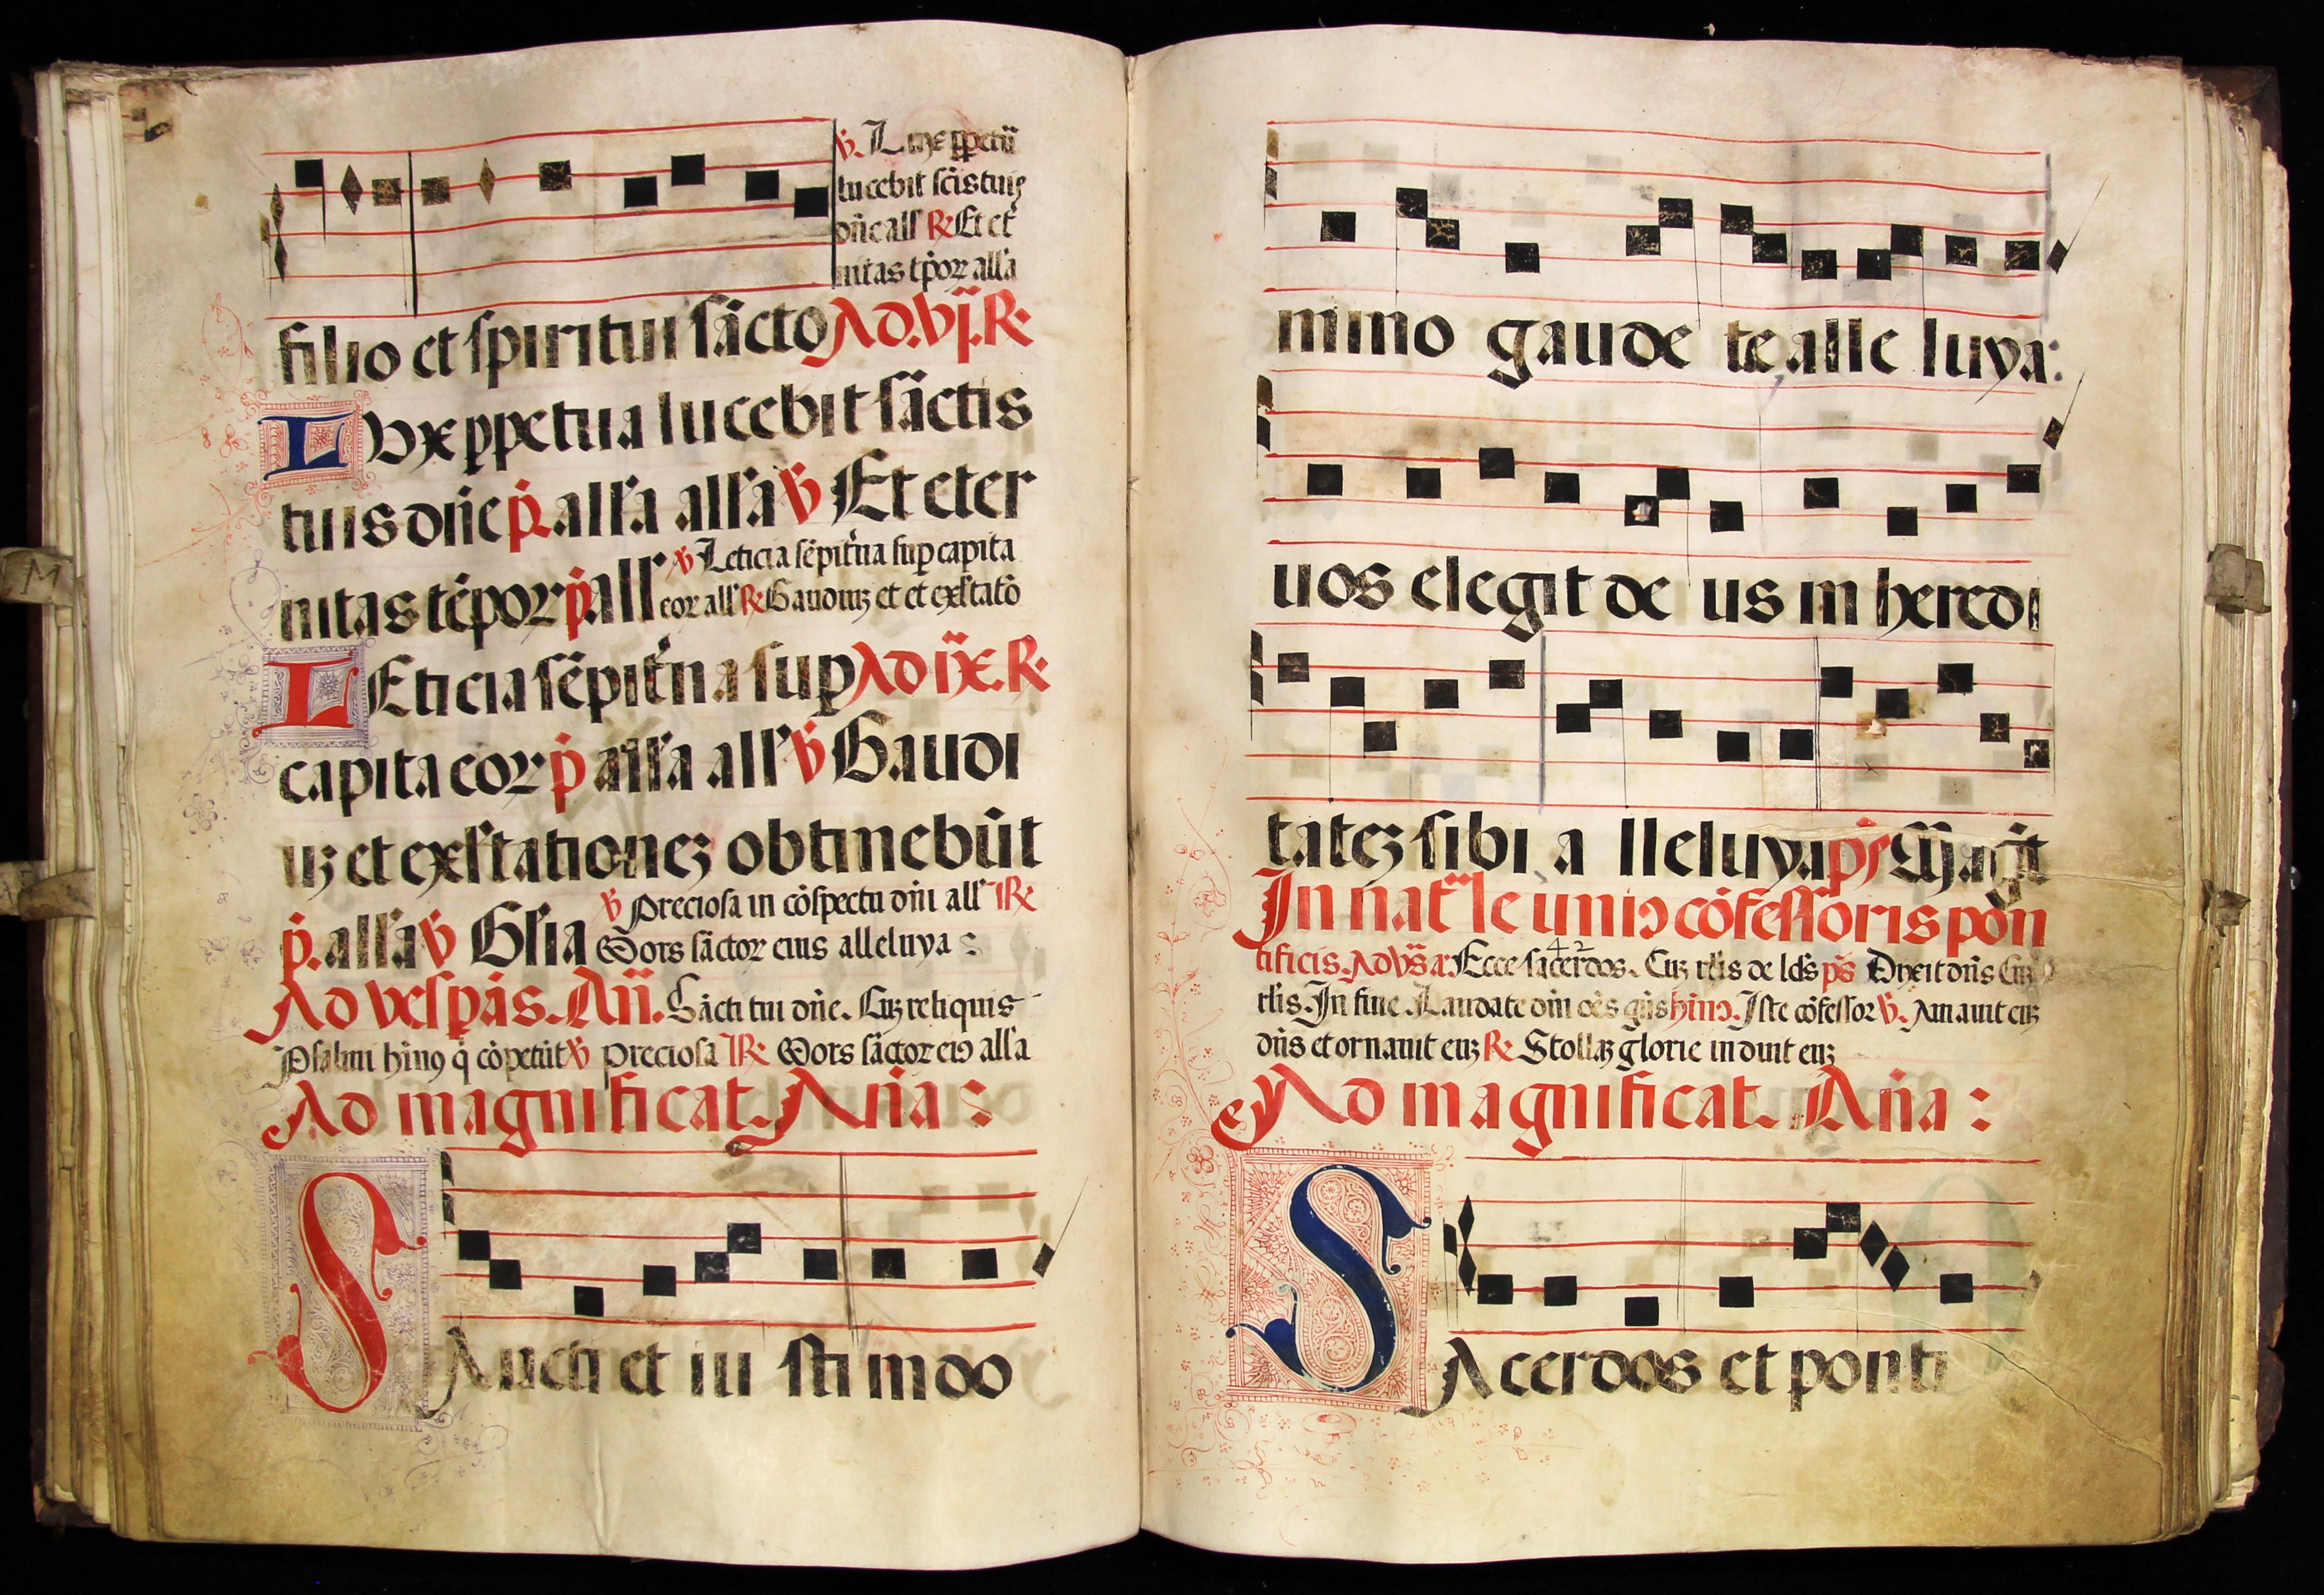 ℣. Luxe ꝑpetu
lucebit sc̄is tuis
dn̄e all' ℟ Et et̾
nitas tp̄oꝝ all'a
filio et spiritui sācto Ad .vj. ℟
LUxe ꝑpetua lucebit sāctis
tuis dn̄e p̄. all'a all'a ℣ Et eter
nitas tēpoꝝ p̄. all' ℣ Leticia sēpit̾na suꝑ capita
eoꝝ all' ℟ Gaudiuꝫ et et exͣltatō
LEticia sēpit̾na suꝑ Ad ix. ℟
capita eoꝝ p̄ all'a all' ℣ Gaudi
uꝫ et exͣltationeꝫ obtinebūt
p̄. all'a ℣ Gl'ia ℣ Preciosa in cōspectu dn̄i all' ℟
Mors sāctoꝝ eius alleluya :
Ad vesꝑas. An̄. Sācti tui dn̄e. Cuꝫ reliquis
Psalmi hīnꝯ q̄ cōpetūt ℣ preciosa ℟ Mors sāctoꝝ eiꝯ all'a
Ad magnificat. An̄a :
SAncti et iu sti in do
mino gaude te alle luya:
uos elegit de us in heredi
tateꝫ sibi a lleluya pś Mag̅t
In nat̄le uniꝯ cōfessoris pon
tificis. Ad vs̄ā: Ecce sacerdos. Cuꝫ rl'is de ld's pś Dixit dn̄s Cuꝫ
rl'is. In fine Laudate dn̄ oēs gn̄s hīnꝯ. Iste cōfessor ℣. Amauit euꝫ
dn̄s et ornauit euꝫ ℟ Stollaꝫ glorie induit euꝫ
Ad magnificat. An̄a :
SAcerdos et ponti